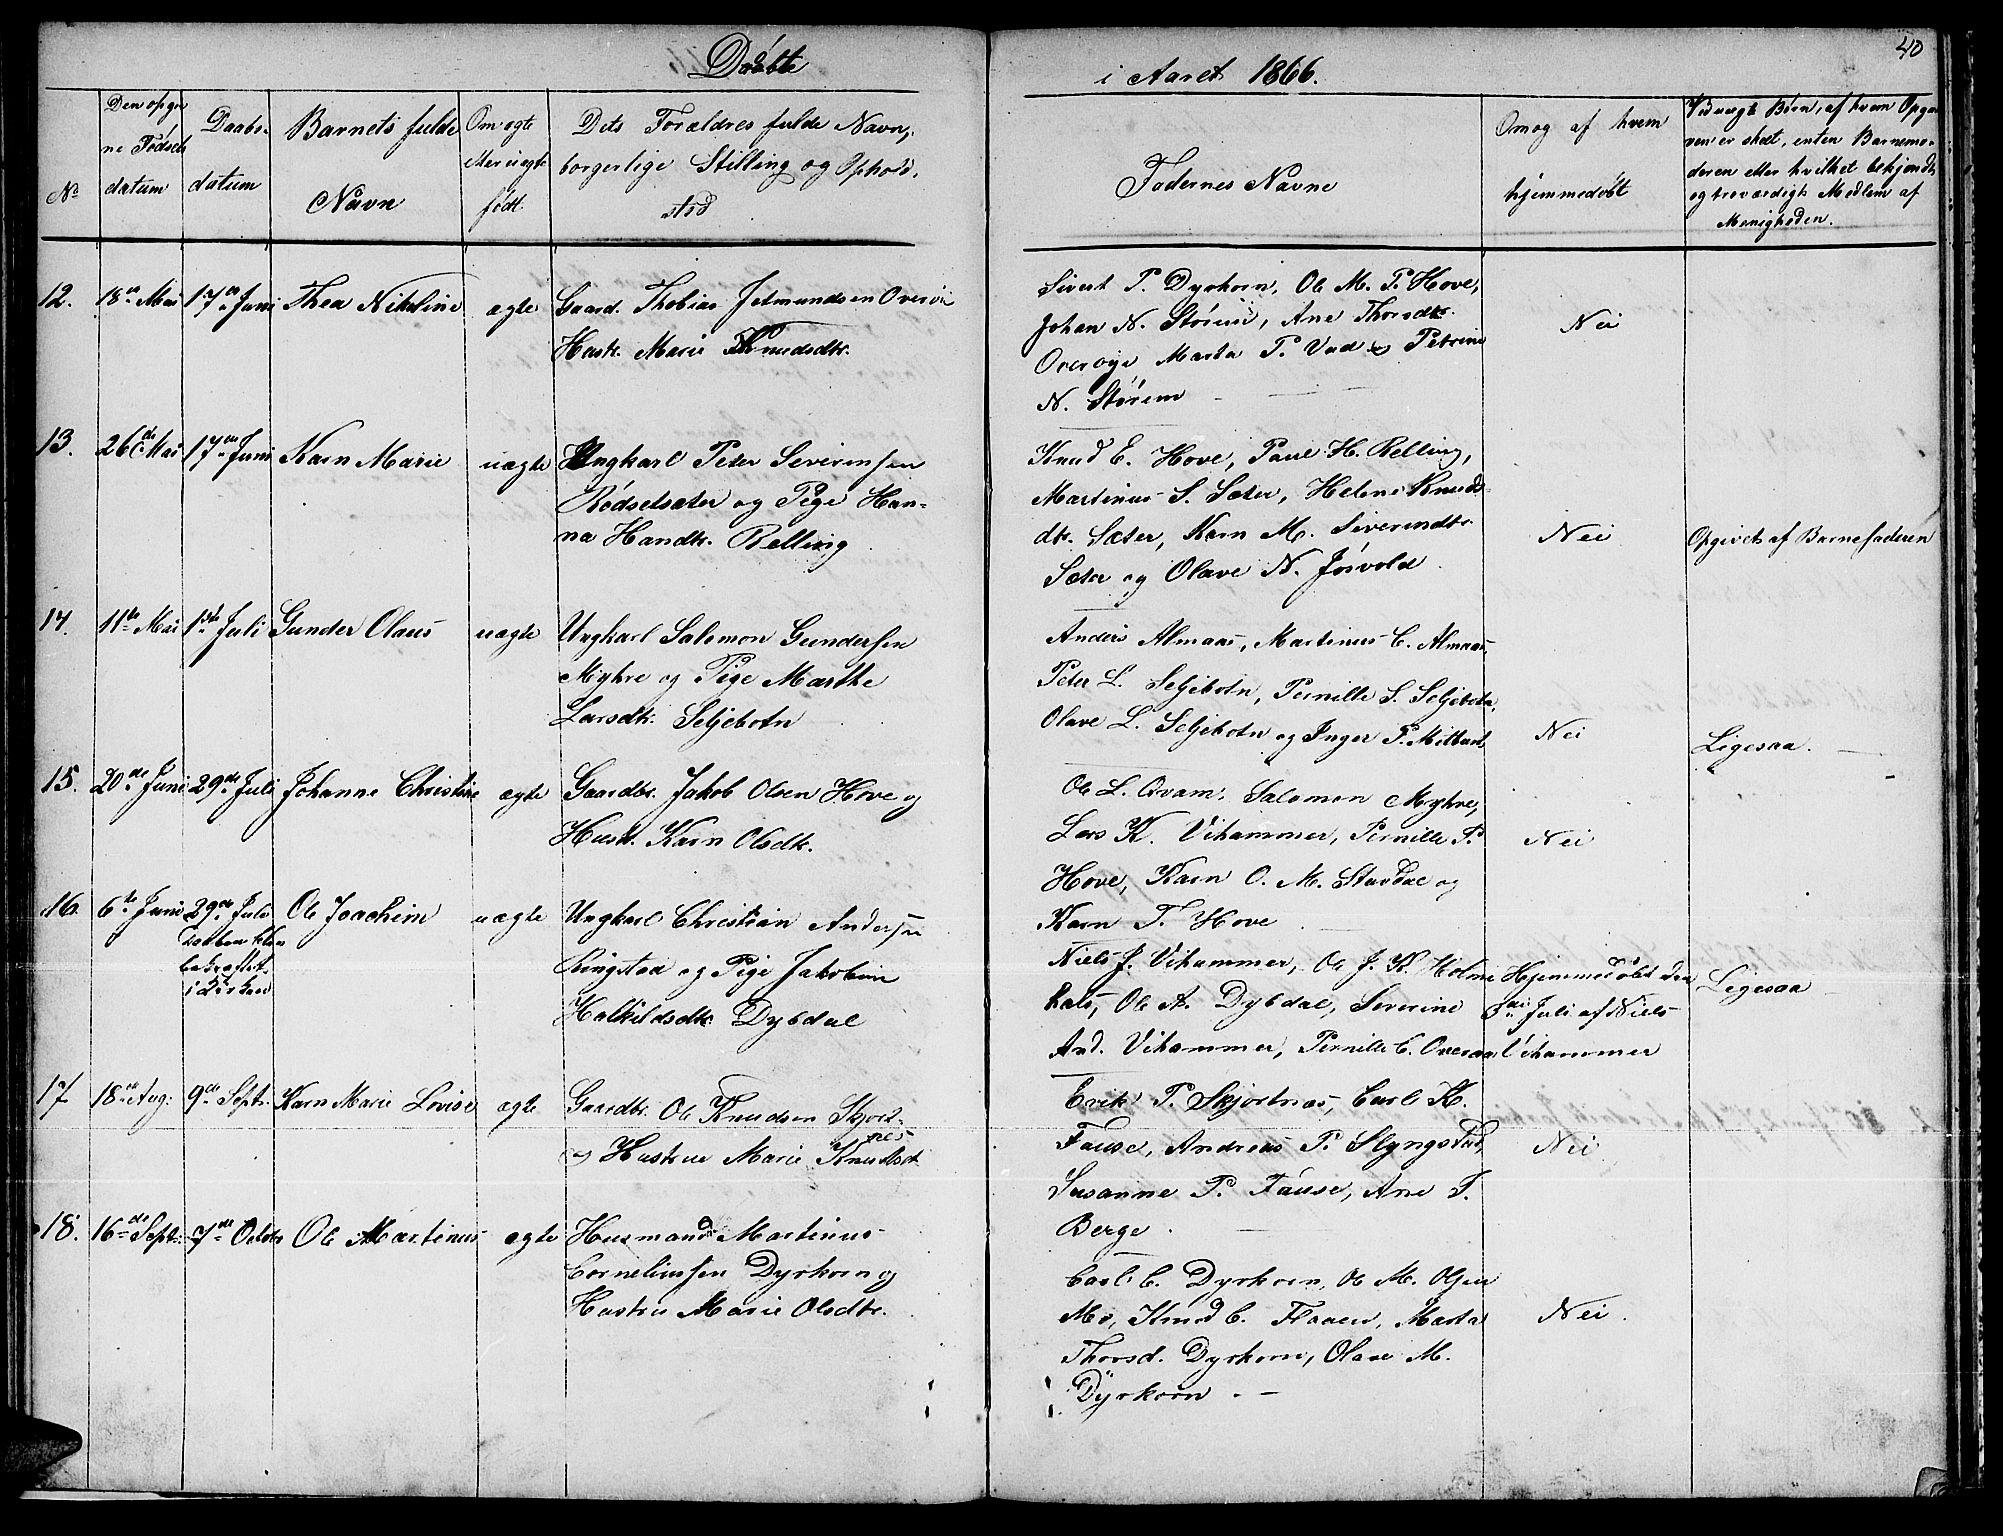 Døbte
i Aaret 1866.
40
No
Den opgivne Fødselsdatum
Daabsdatum
Barnets fulde Navn
Om ægte eller uægte født.
Dets Forældres fulde Navn, borgerlige Stilling og Opholdssted
Faddernes Navne
Om og af hvem hjemmedøbt
Ved uægte Børn, af hvem Opgaven er skeet, enten Barnemoderen eller hvilket bekjendt og troværdigt Medlem af Menigheden.
12. 18de Mai 17de Juni Thea Nikoline ægte
Gaard. Thobias Jetmundsen Overøie
Hustr. Marie Knudsdtr.
Sivert P. Dyrkorn, Ole M. P. Hove,
Johan N. Støren, Ane Thorsdtr.
Overøye, Marta P. Vad og Petrine
N. Støren
Nei
13. 26de Mai 17de Juni Karn Marie uægte
Ungkarl Peter Severinsen
Rødsetsæter og Pige Han-
na Hansdtr. Relling
Knud E. Hove, Paul H. Relling,
Martinus S. Sæter, Helene Knuds-
dtr. Sæter, Karn M. Siverindtr.
Sæter og Olave N. Jøsvold
Nei
Opgivet af Barnefaderen
14. 11te Mai 1ste Juli Gunder Olaus uægte
Ungkarl Salomon Gundersen
Myhre og Pige Marthe
Larsdtr. Seljebotn
Anders Almaas, Martinus C. Almaas,
Peter L. Seljebotn, Pernille S. Seljebotn,
Olave L. Seljebotn og Inger P. Mittun
Nei
Ligesaa.
15. 20de Juni 29de Juli Johanne Christine ægte
Gaardbr. Jakob Olsen Hove og
Hustr. Karn Olsdtr.
Ole L. Qvam, Salomon Myhre,
Lars K. Vihammer, Pernille P.
Hove, Karn O. M. Stavdal og
Karn T. Hove
Nei
16. 6te Juni 29de Juli Ole Joachim uægte
Daaben blev
bekræftet
i Kirken
Ungkarl Christian Andersen
Ringstad og Pige Jakobine
Halkildsdtr. Dybdal
Niels J. Vihammer, Ole J. K. Holme
hals, Ole A. Dybdal, Severine
And. Vihammer, Pernille C. Overaa
Hjemmedøbt den
Juli af Niels
Vihammer
Ligesaa
17 18de Aug: 9de Septr. Karn Marie Lovise ægte
Gaardbr. Ole Knudsen Skjort-
nes
og Hustrue Marie Knudtsd
Erik P. Skjortnæs, Carl K.
Fause, Andreas P. Slyngstad,
Susanne P. Fause, Ane T.
Berge.
Nei
18. 16de Septr. 7de Octobr Ole Martinus ægte
Husmand Martinus
Corneliussen Dyrkorn og
Hustru Marie Olsdtr.
Carl C. Dyrkorn, Ole M. Olsen
Mo, Knud C. Flaaen, Marta
Thorsd. Dyrkorn, Olave M.
Dyrkorn.
Nei.